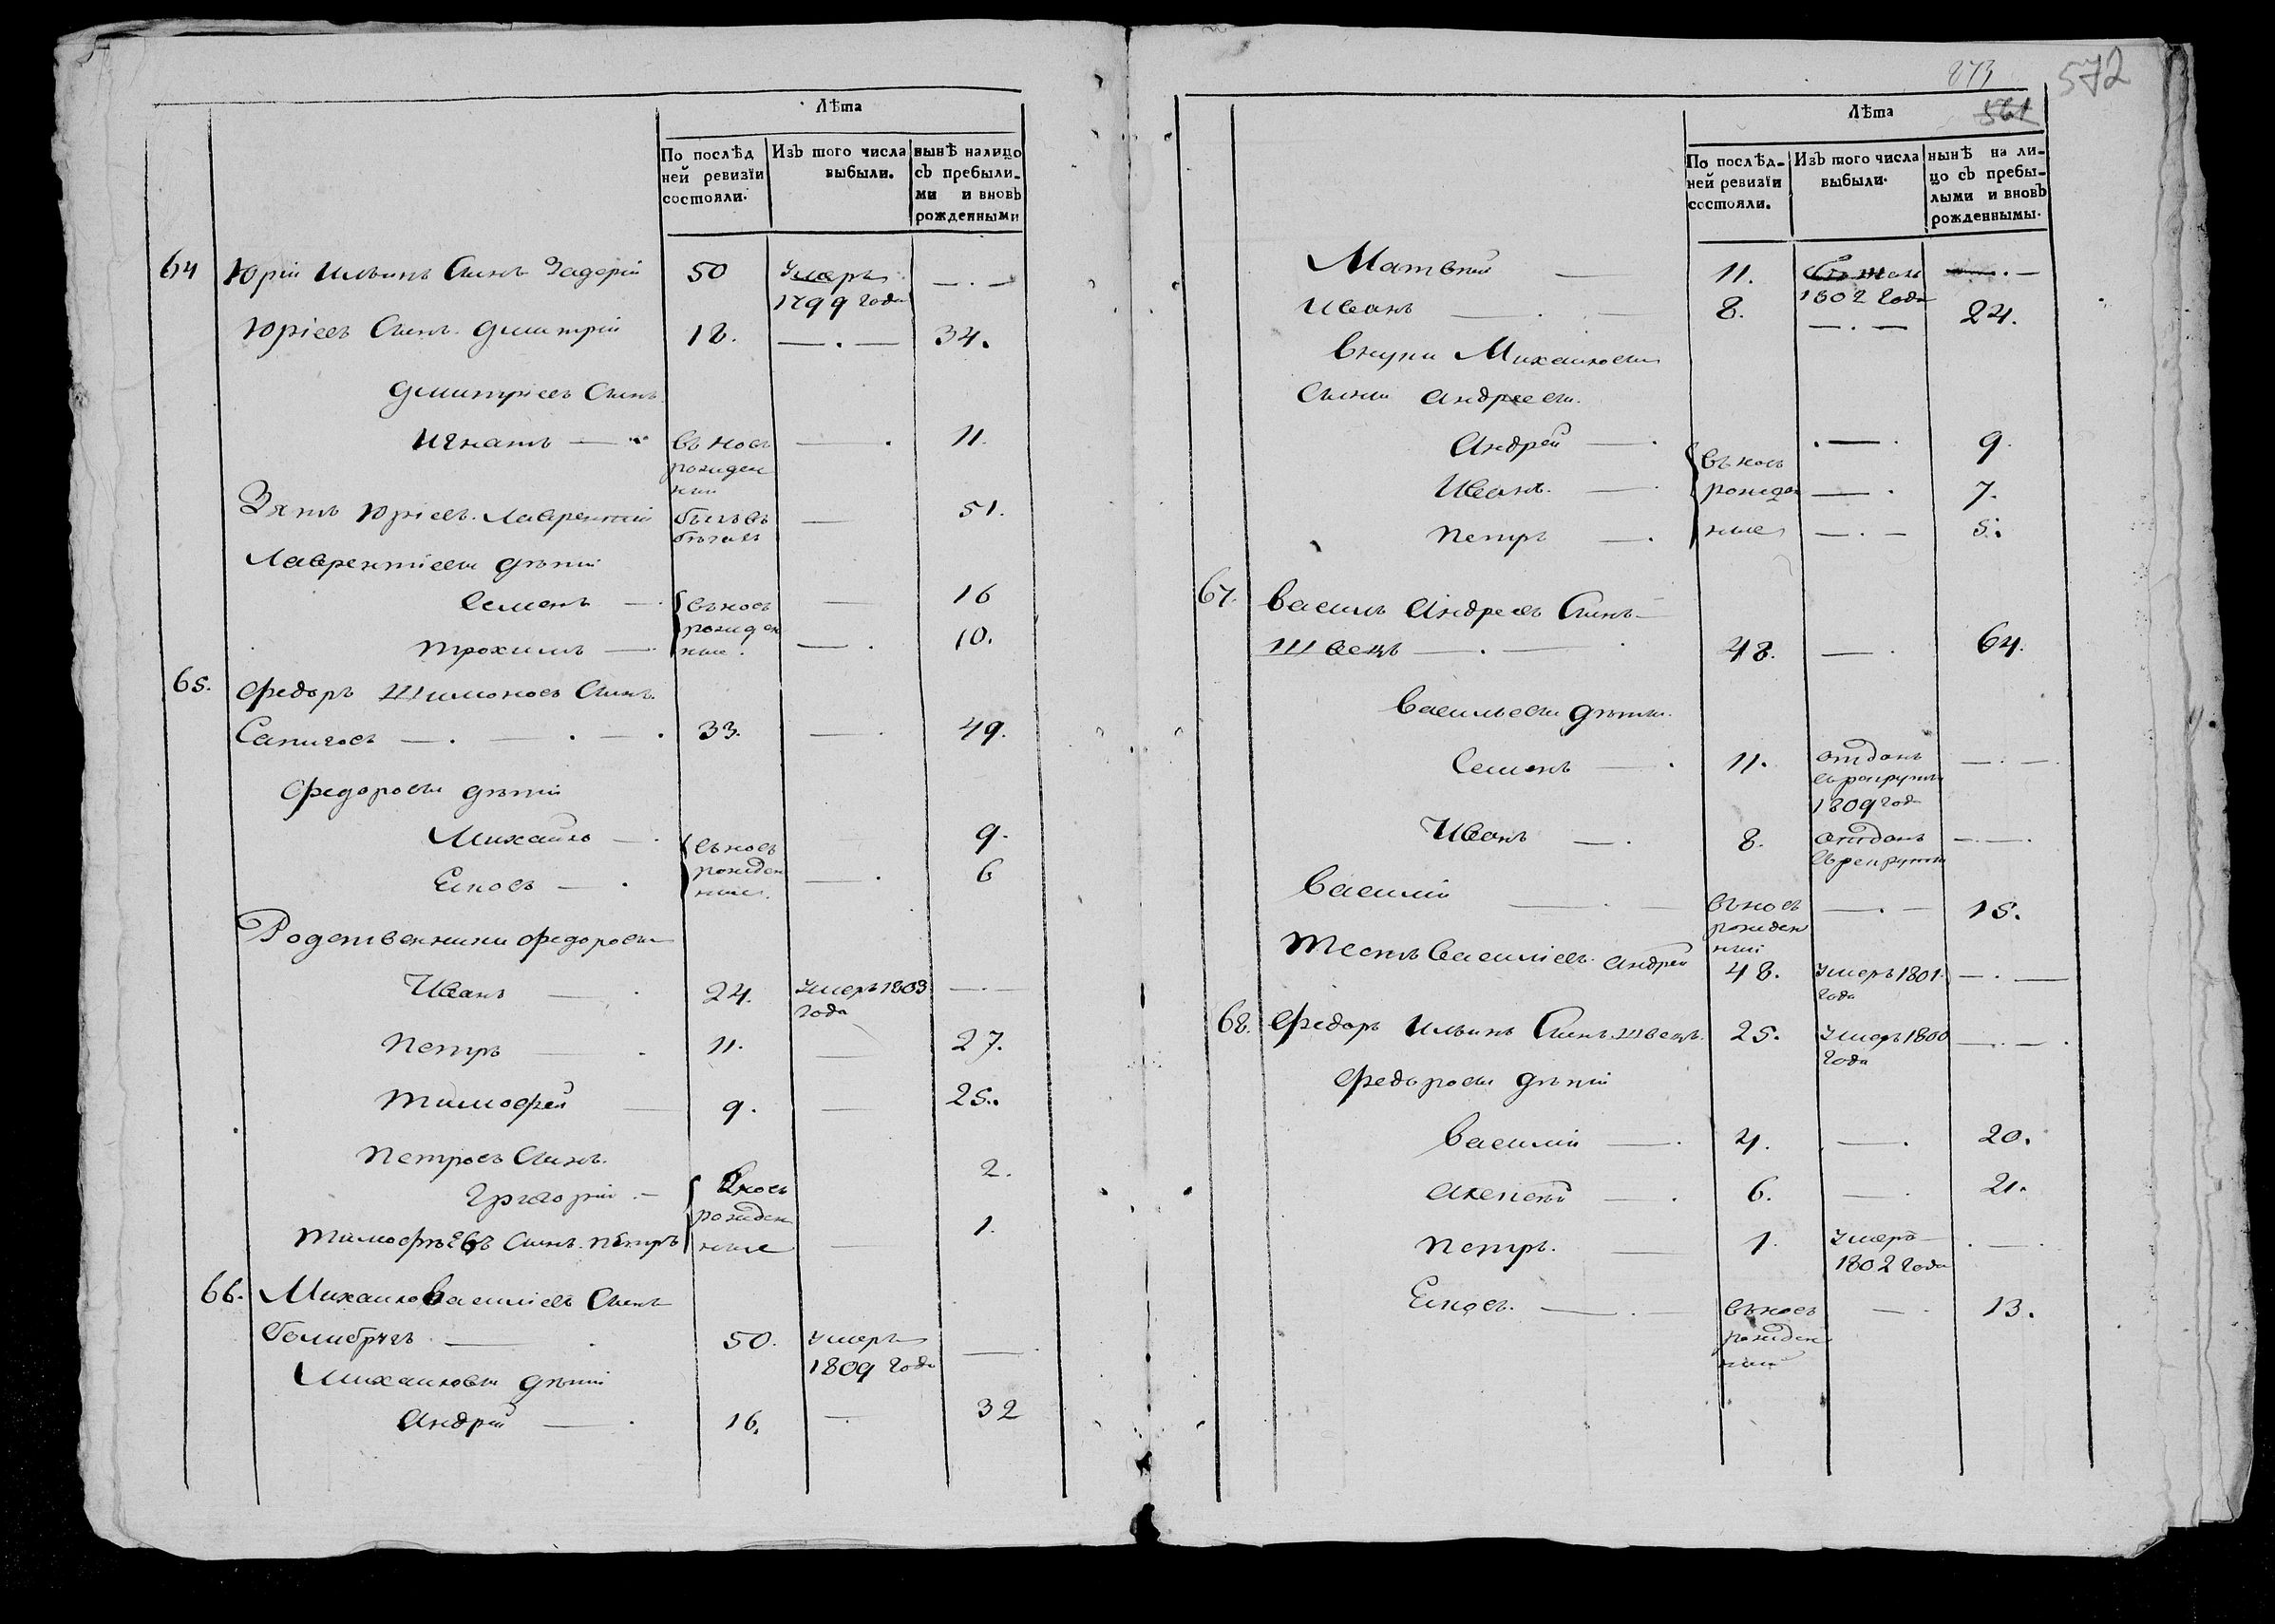 Лѣта
По послѣд
ней ревизїи
состояли.
Изъ того числа
выбыли.
нынѣ налицо
съ пребыли-
ми и вновь
рожденными
64 Юрій Ильинъ Синъ Задерій 50 Умеръ — . —
1799 года
Юріевъ Синъ Дмитрій 18. — . — 34.
Дмитріевъ Синъ
Игнатъ — въновъ — . 11.
рожден
ный
Зять Юріевъ Лаврентій бѣгъвъ — 51.
бѣгахъ
Лаврентіеви дѣтій
Семенъ — въновъ — 16
Трохимъ — рожден — . 10.
ные.
65. Федоръ Шимоновъ Синъ
Сапиговъ — . — . — . 33. — . 49.
Федорови дѣтій
Михайло — . въновъ 9.
Еиновъ — . рожден — . 6
ные.
Родственники Федорови
Иванъ — . 24. Умеръ 1803 — . —
года
Петръ — . 11. — 27.
Тимофей — 9. — 25.
Петровъ Синъ
Григорій . — Вновъ 2.
рожден
Тимофѣевъ Синъ Петръ ные — 1.
66. Михайло Василіевъ Синъ
Голибрехъ — . 50. Умеръ — .
1809 года
Михайлови дѣтій
Андрій — . 16. — . 32
873
572
561
Лѣта
По послѣд-
ней ревизїи
состояли.
Изъ того числа
выбыли.
нынѣ на ли-
цо съ пребы-
лыми и вновь
рожденнымы.
Матвій — 11. — . —
1802 года
Иванъ — . — 8. — . — 24.
Внуки Михайлови
Сыни Андрееви.
Андрей — . . — . 9.
въновъ
Иванъ. — . рожден — . 7.
Петръ — . ные — . — 5.
67. Василь Андреевъ Синъ —
Швецъ — . — . 48. — . 64.
Васильеви дѣтии.
Семенъ — . 11. отданъ — . —
въ рекруты
1809 год
Иванъ — . 8. отданъ — . — .
въ рекруты
Василій — . — въновъ — . — 15.
рожден
ный
Тесть Василіевъ Андрей 48. Умеръ 1801. — . —
года
68. Федоръ Ильинъ Синъ Швецъ. 25. Умеръ 1800 — . — .
года
Федорови дѣтій
Василій — . 4. — . 20.
Алексѣй — . 6. — . 21.
Петръ. — 1. Умеръ . — .
1802 года
Еиновъ. — . — въновъ — . 13.
рожден
ный